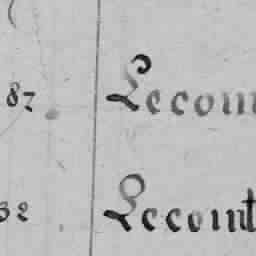 87 Lecom
32 Lecomt